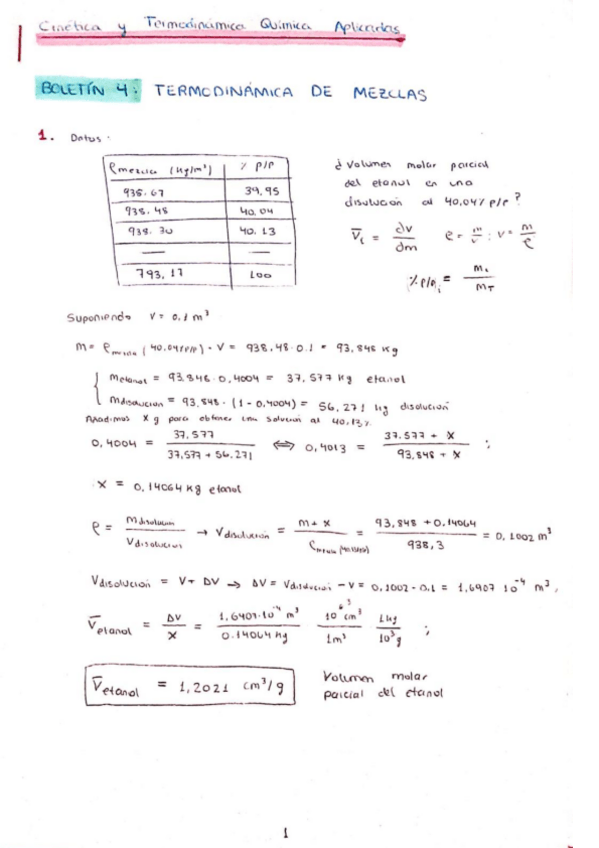 Cinética y Termodinámica Química Aplicadas
BOLETÍN 4: TERMODINÁMICA DE MEZCLAS
1. Datos:
ρmezcla (kg/m³) % P/P
938.67 39,95
938.48 40,04
938.30 40.13
— —
793,17 100
¿Volumen molar parcial
del etanol en una
disolución al 40,04% p/p?
V̄i = dv/dm ρ = m/v ; v = m/ρ
% P/Pi = mi/mT
Suponiendo V = 0.1 m³
m = ρmezcla (40.04% P/P) · V = 938.48 · 0.1 = 93,848 kg
metanol = 93.848 · 0,4004 = 37,577 kg etanol
mdisolución = 93,848 · (1 - 0,4004) = 56,271 kg disolución
Añadimos x g para obtener una solución al 40,13%
0,4004 = 37,577/(37,577 + 56.271) ⇔ 0,4013 = (37.577 + x)/(93,848 + x) ;
x = 0,14064 kg etanol
ρ = mdisolución/Vdisolución → Vdisolución = (m + x)/ρmezcla = (93,848 + 0,14064)/938,3 = 0,1002 m³
Vdisolución = V + ΔV → ΔV = Vdisolución - V = 0,1002 - 0.1 = 1,6907 10⁻⁴ m³,
V̄etanol = ΔV/x = 1,6907·10⁻⁴ m³/0.14064 kg 10⁶ cm³/1m³ 1kg/10³g ;
V̄etanol = 1,2021 cm³/g
Volumen molar
parcial del etanol
1